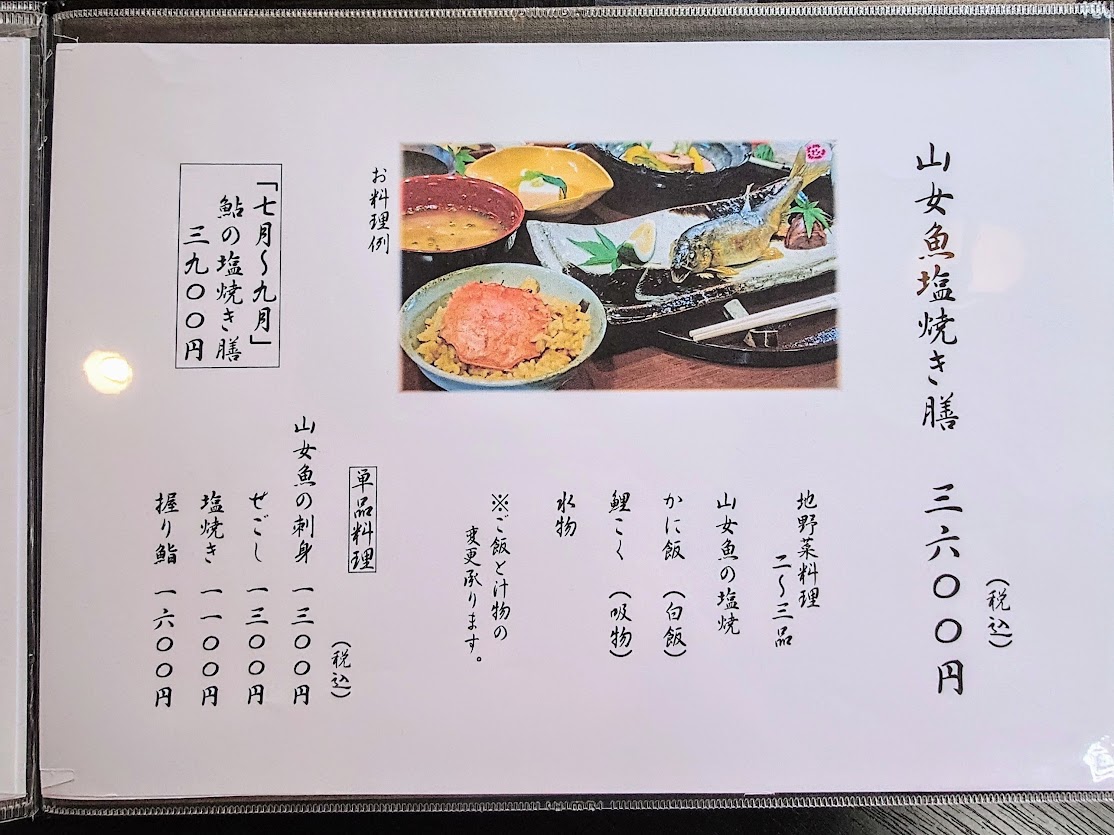 山女魚塩焼き膳 三六〇〇円
(税込)
地野菜料理
二〜三品
山女魚の塩焼
かに飯 (白飯)
鯉こく (吸物)
水物
※ご飯と汁物の
変更承ります。
お料理例
「七月〜九月」
鮎の塩焼き膳
三九〇〇円
単品料理
(税込)
山女魚の刺身 一三〇〇円
せごし 一三〇〇円
塩焼き 一一〇〇円
握り鮨 一六〇〇円